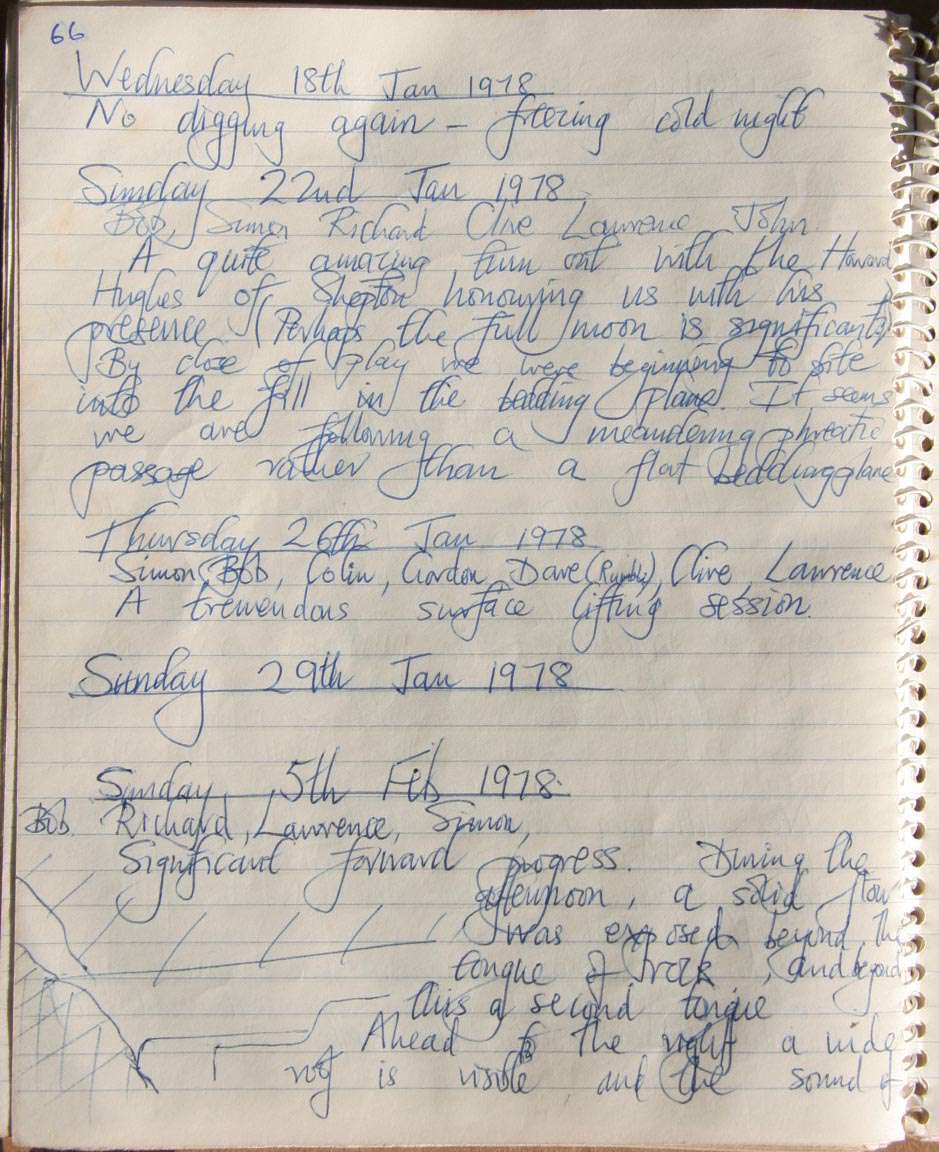 66
Wednesday 18th Jan 1978
No digging again – freezing cold night
Sunday 22nd Jan 1978
Bob, Simon Richard Clive Lawrence John.
A quite amazing turn out with the Howard
Hughes of Shepton honouring us with his
presence (Perhaps the full moon is significant?)
By close of play we were beginning to bite
into the fill in the bedding plane. It seems
we are following a meandering phreatic
passage rather than a flat bedding plane
Thursday 26th Jan 1978
Simon, Bob, Colin, Gordon, Dave (Rumble), Clive, Lawrence
A tremendous surface lifting session.
Sunday 29th Jan 1978
Sunday 5th Feb 1978
Bob. Richard, Lawrence, Simon,
Significant forward progress. During the
afternoon, a solid floor
was exposed beyond the
tongue of rock, and beyond
this a second tongue
Ahead to the right a wide
roof is visible and the sound of